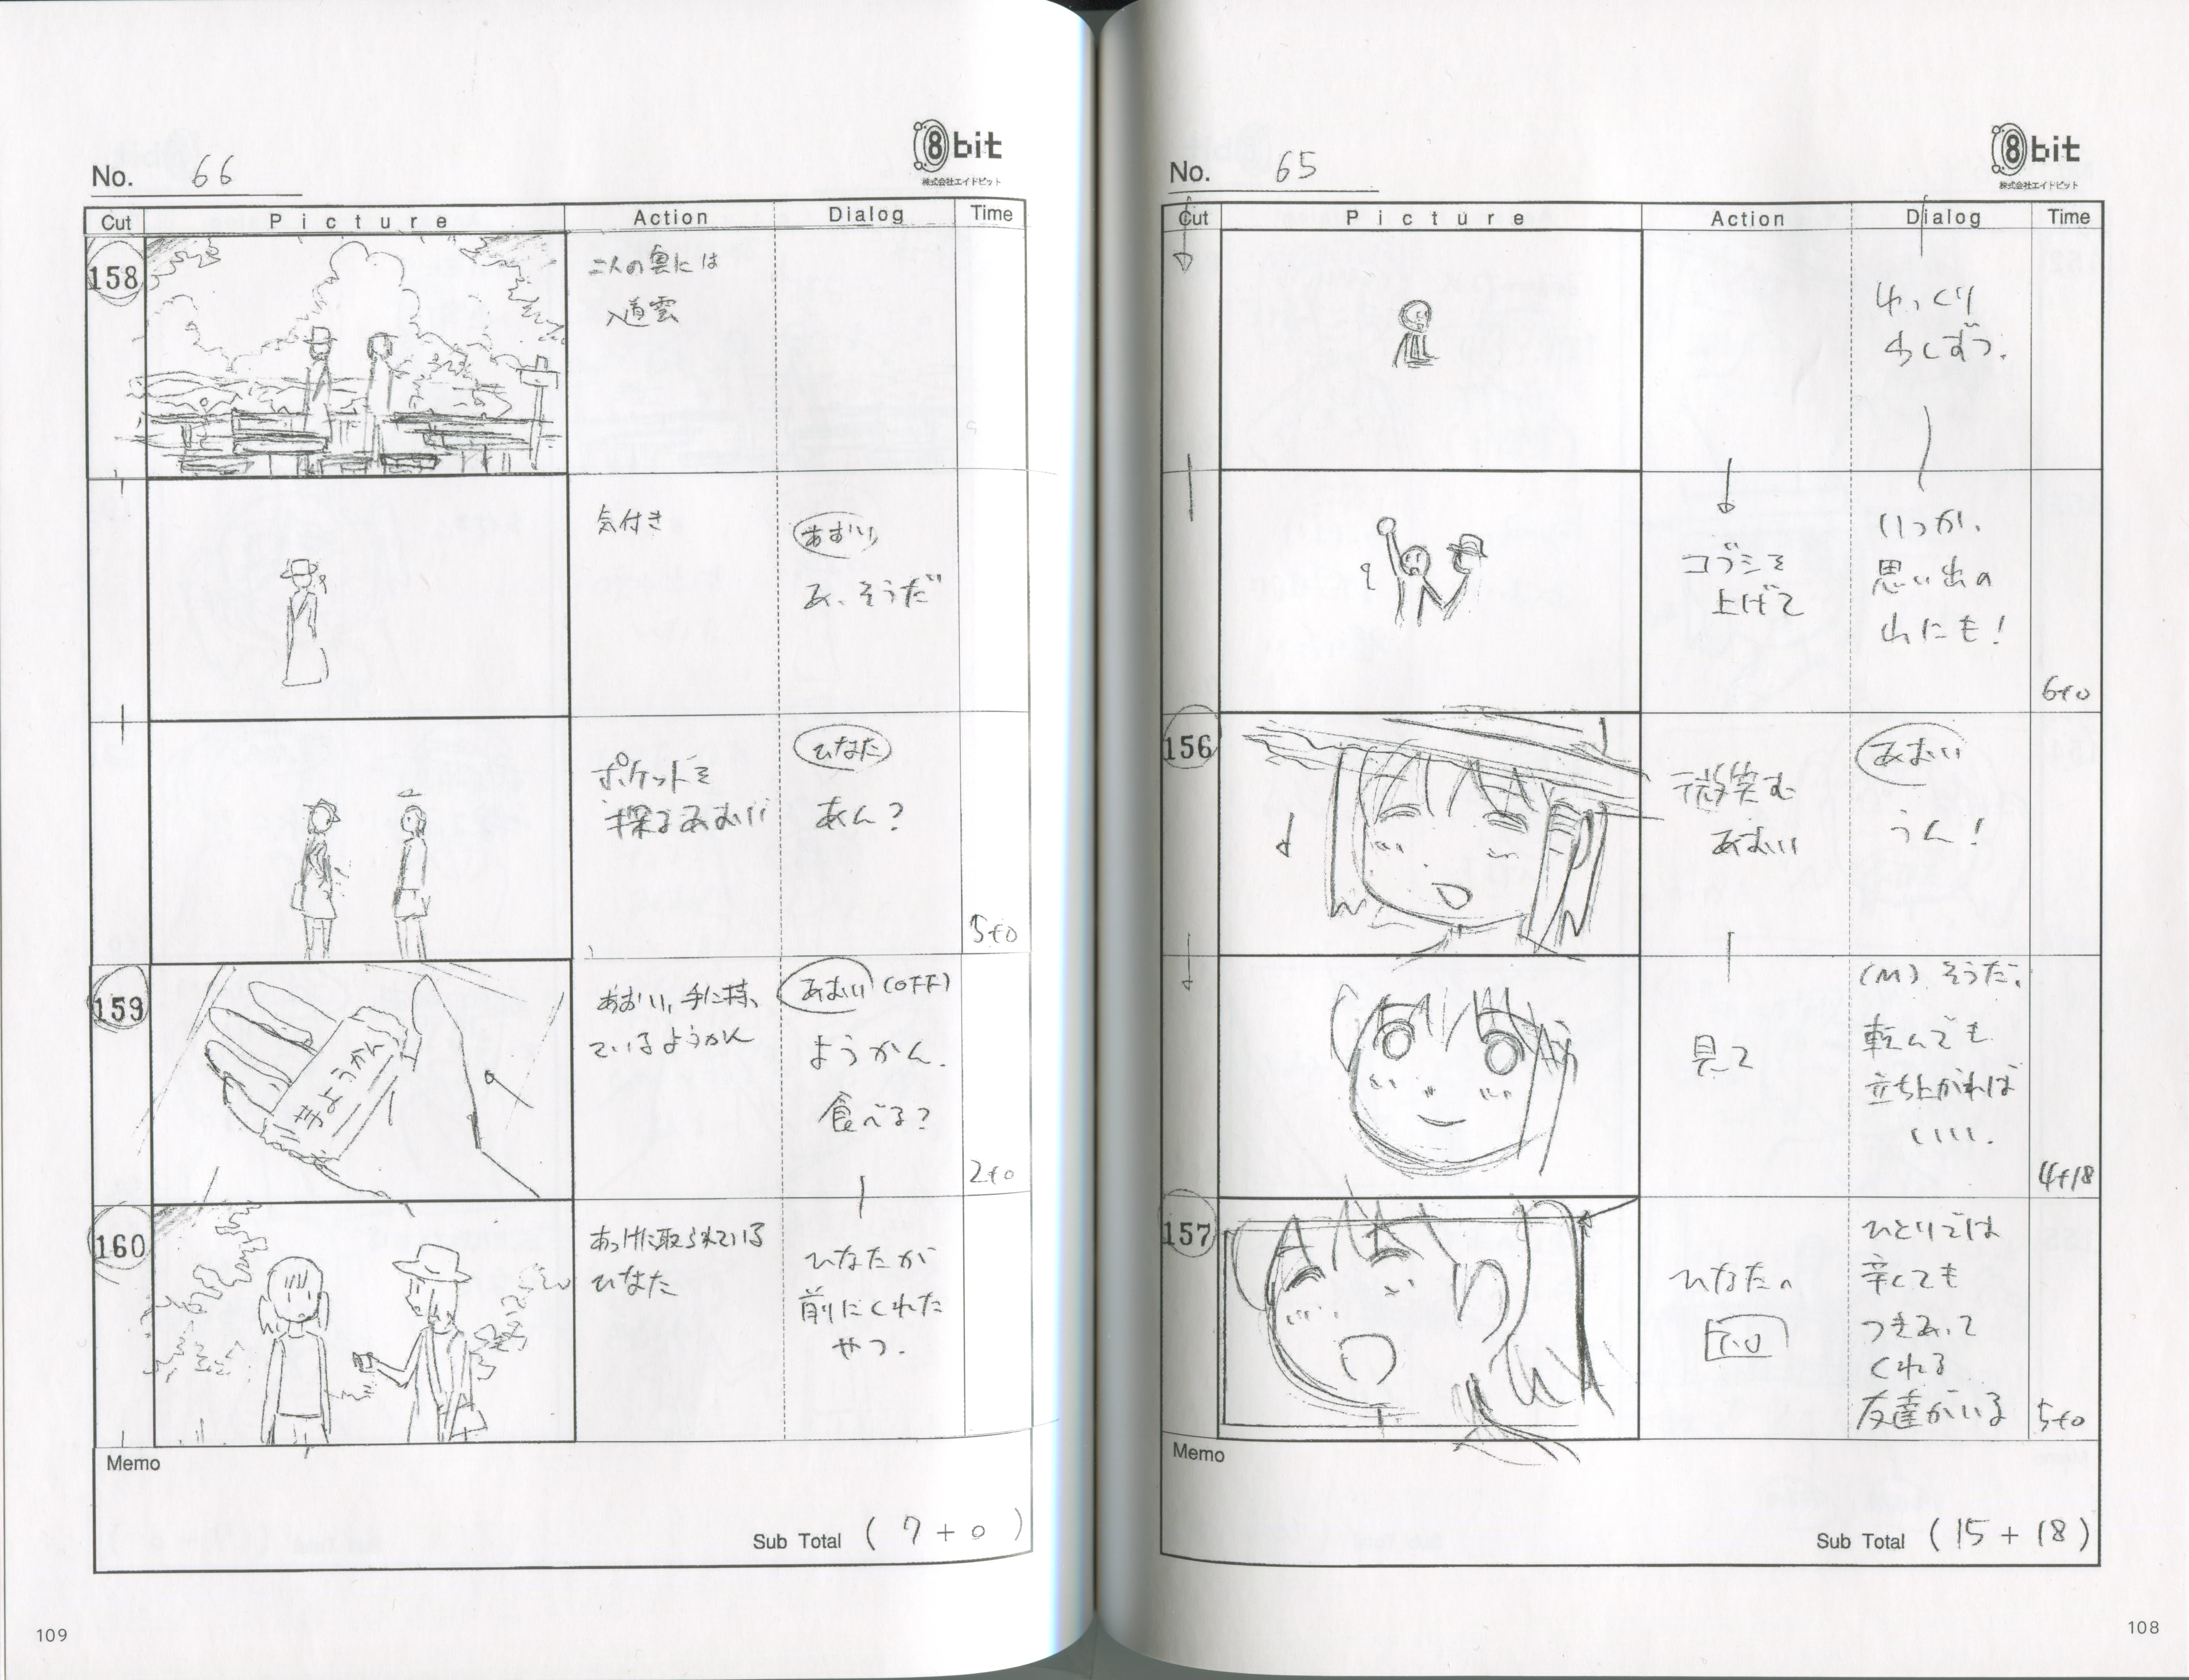 No. 65
8bit
株式会社エイトビット
Cut Picture Action Dialog Time
ゆっくり
少しずつ。
コブシを
上げて
いつか、
思い出の
山にも！
6+0
156
微笑む
あおい
あおい
うん！
見て
(M) そうだ、
転んでも
立ち上がれば
いい。
4+18
157
ひなたの
ひとりでは
辛くても
つきあって
くれる
友達がいる
5+0
Memo
Sub Total (15+18)
108
No. 66
8bit
株式会社エイトビット
Cut Picture Action Dialog Time
158
二人の奥には
入道雲
気付き
あおい
あ、そうだ
ポケットを
探るあおい
ひなた
あん？
5+0
159
きようかん
あおい、手に持っ
ているようかん
あおい (OFF)
ようかん、
食べる？
2+0
160
あっけに取られている
ひなた
ひなたが
前にくれた
やつ。
Memo
Sub Total (7+0)
109